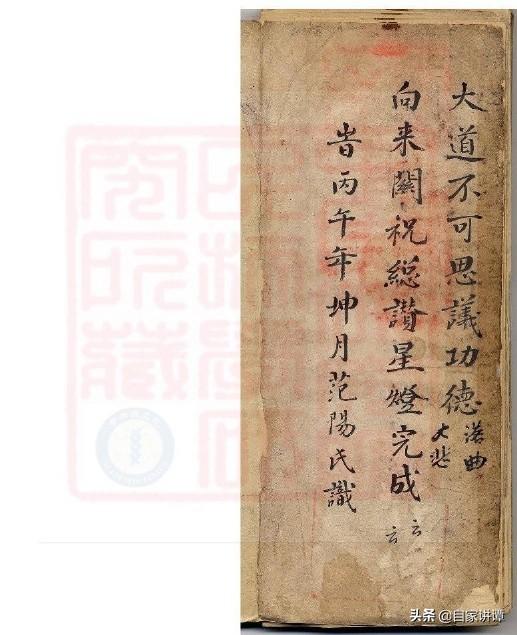 大道不可思議功德
大悲
向来關祝総讃星燈完成
云云
旹丙午年坤月范陽氏識
头条 @自家讲谭